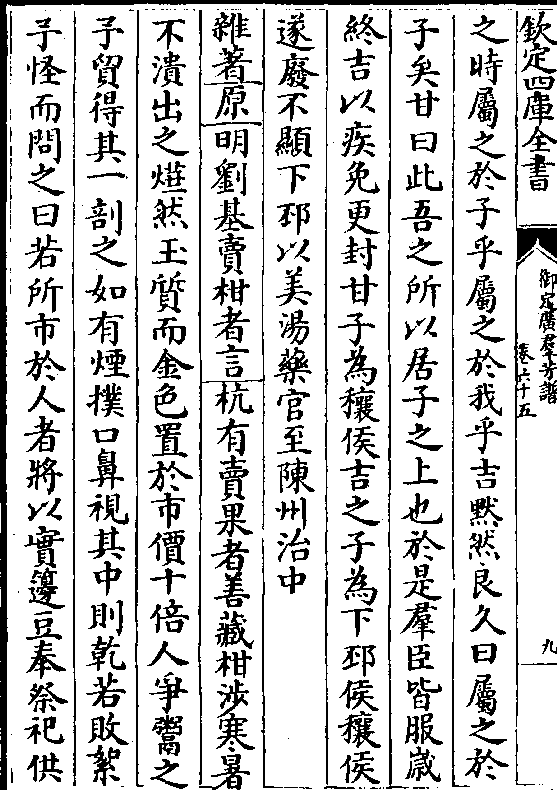 欽定四庫全書
御定廣羣芳譜
卷六十五
九
之時屬之於子乎屬之於我乎吉默然良久曰屬之於
子矣甘曰此吾之所以居子之上也於是羣臣皆服嵗
終吉以疾免更封甘子為穰侯吉之子為下邳侯穰侯
遂廢不顯下邳以美湯藥官至陳州治中
雜著原明劉基賣柑者言杭有賣果者善藏柑涉寒暑
不潰出之燁然玉質而金色置於市價十倍人爭鬻之
予貿得其一剖之如有煙撲口鼻視其中則乾若敗絮
予怪而問之曰若所市於人者將以實籩豆奉祭祀供